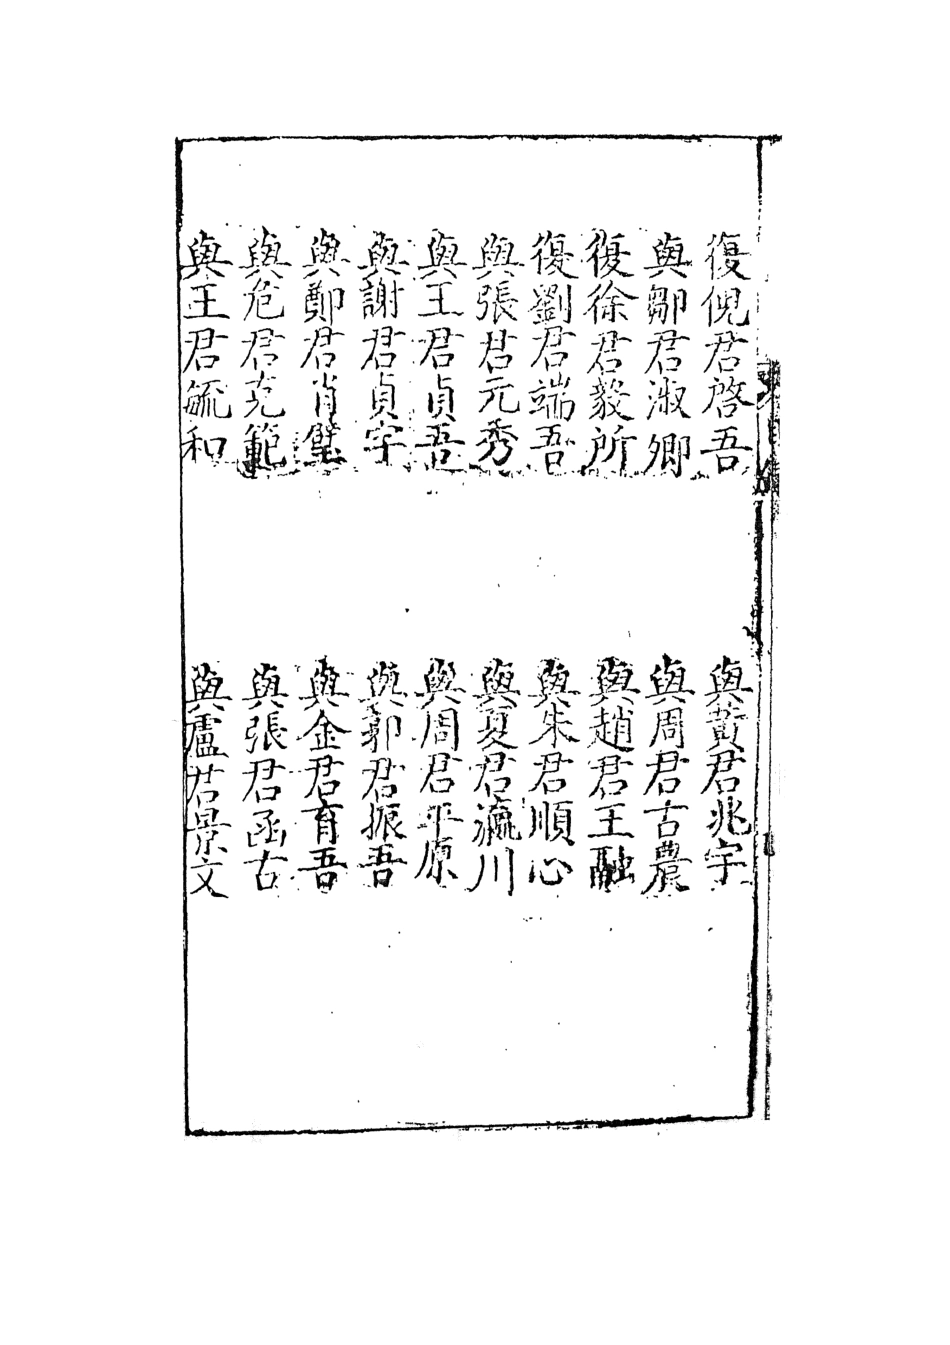 復倪君啓吾
與黃君兆宇
與鄒君淑卿
與周君古農
復徐君毅所
與趙君王融
復劉君端吾
與朱君順心
與張君元秀
與夏君瀛川
與王君貞吾
與周君平原
與謝君貞宇
與郭君振吾
與鄭君肖璧
與金君育吾
與危君克範
與張君函古
與王君毓和
與盧君景文